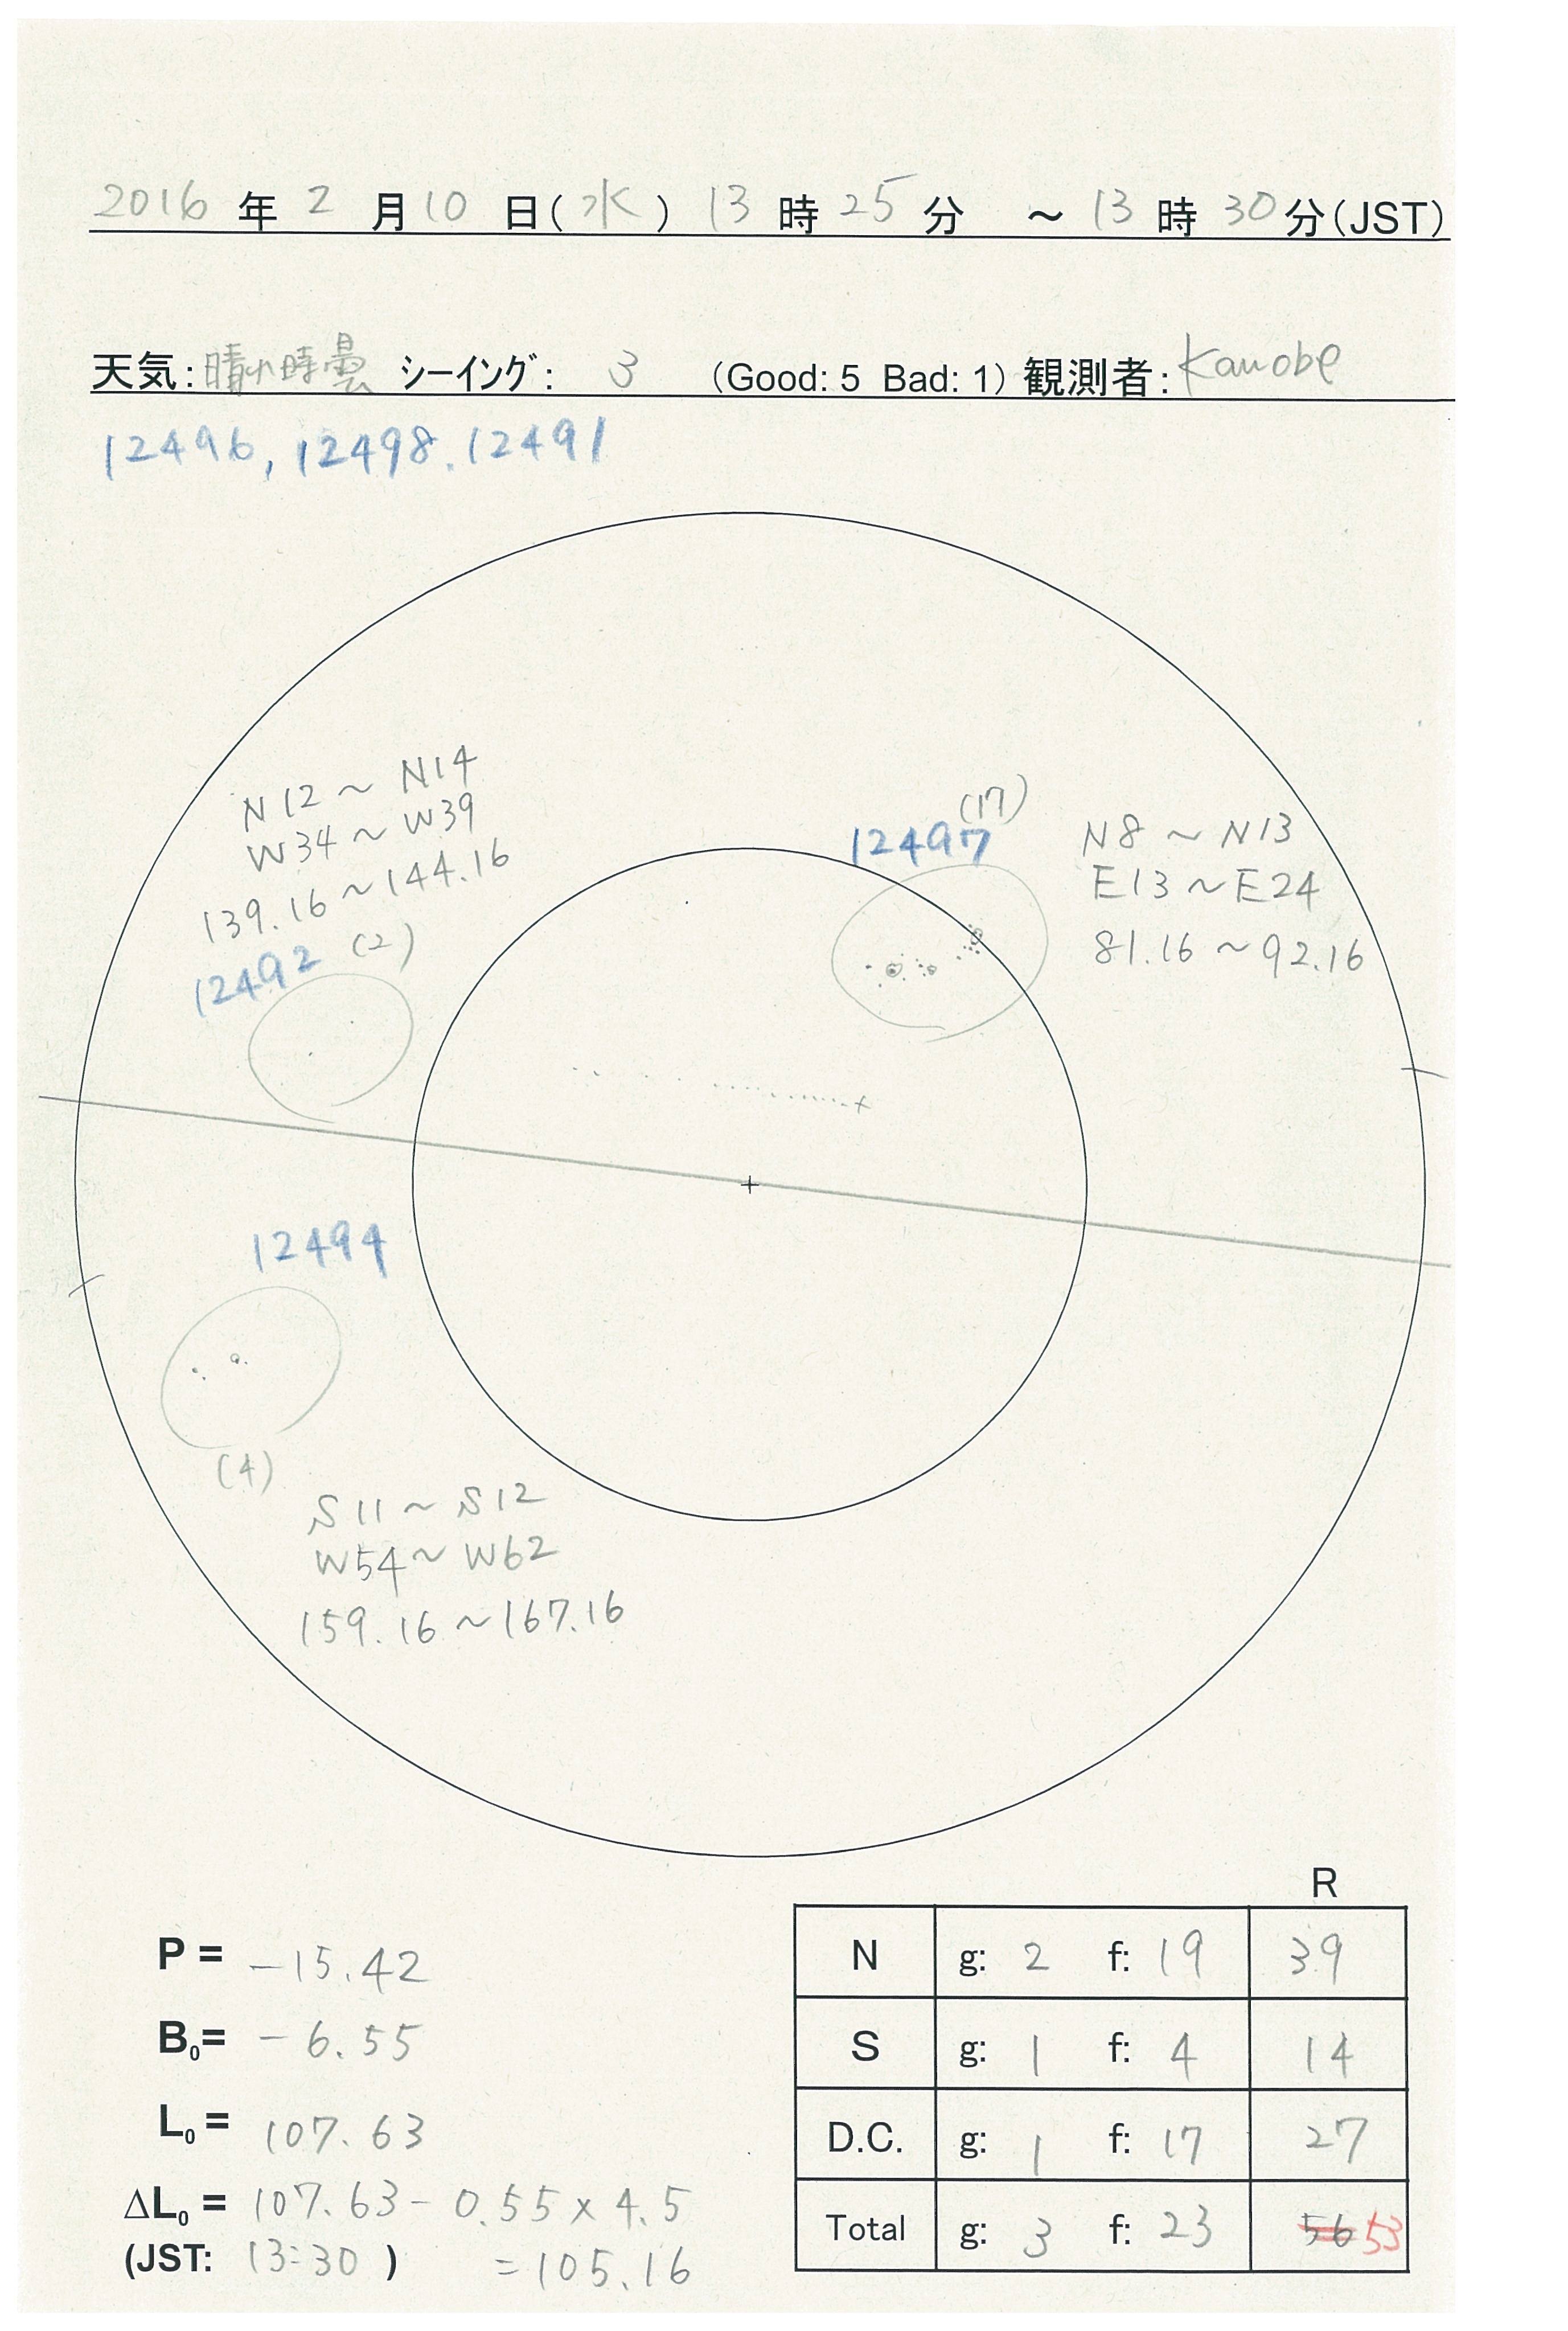 2016 年 2 月 10 日(水) 13 時 25 分 ~ 13 時 30 分(JST)
天気: 晴れ時曇 シーイング: 3 (Good: 5 Bad: 1) 観測者:
12496, 12498. 12491
N12~N14
W34~W39
139.16~144.16
12492 (2)
(17)
12497
N8 ~ N13
E13~E24
81.16~92.16
12494
(4)
S11~S12
W54~W62
159.16~167.16
P = -15.42
B0= -6.55
L0= 107.63
ΔL0 = 107.63- 0.55×4.5
(JST: 13:30 ) =105.16
R
N g: 2 f: 19 39
S g: 1 f: 4 14
D.C. g: 1 f: 17 27
Total g: 3 f: 23 56 53